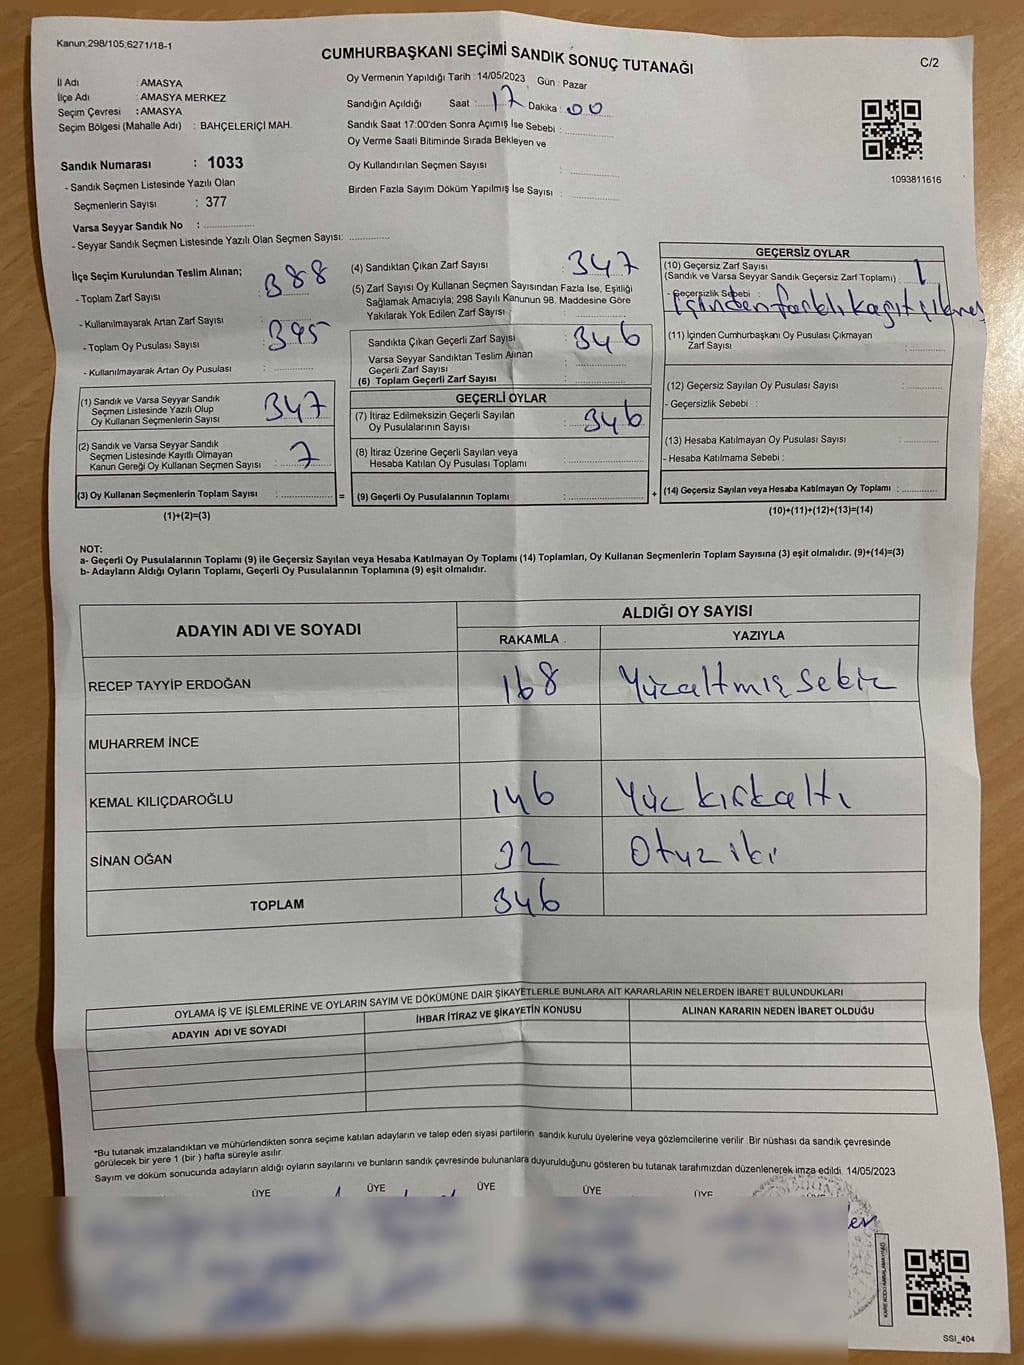 Kanun;298/105,6271/18-1
CUMHURBAŞKANI SEÇİMİ SANDIK SONUÇ TUTANAĞI
C/2
İl Adı : AMASYA
İlçe Adı : AMASYA MERKEZ
Seçim Çevresi : AMASYA
Seçim Bölgesi (Mahalle Adı) : BAHÇELERİÇİ MAH.
Sandık Numarası : 1033
- Sandık Seçmen Listesinde Yazılı Olan
Seçmenlerin Sayısı : 377
Varsa Seyyar Sandık No :
- Seyyar Sandık Seçmen Listesinde Yazılı Olan Seçmen Sayısı:
Oy Vermenin Yapıldığı Tarih : 14/05/2023 Gün : Pazar
Sandığın Açıldığı Saat : 17 Dakika : 00
Sandık Saat 17:00'den Sonra Açımış İse Sebebi :
Oy Verme Saati Bitiminde Sırada Bekleyen ve
Oy Kullandırılan Seçmen Sayısı :
Birden Fazla Sayım Döküm Yapılmış İse Sayısı :
1093811616
İlçe Seçim Kurulundan Teslim Alınan;
- Toplam Zarf Sayısı : 388
- Kullanılmayarak Artan Zarf Sayısı :
- Toplam Oy Pusulası Sayısı : 395
- Kullanılmayarak Artan Oy Pusulası :
(1) Sandık ve Varsa Seyyar Sandık
Seçmen Listesinde Yazılı Olup
Oy Kullanan Seçmenlerin Sayısı : 347
(2) Sandık ve Varsa Seyyar Sandık
Seçmen Listesinde Kayıtlı Olmayan
Kanun Gereği Oy Kullanan Seçmen Sayısı : 7
(3) Oy Kullanan Seçmenlerin Toplam Sayısı : =
(1)+(2)=(3)
(4) Sandıktan Çıkan Zarf Sayısı : 347
(5) Zarf Sayısı Oy Kullanan Seçmen Sayısından Fazla İse, Eşitliği
Sağlamak Amacıyla; 298 Sayılı Kanunun 98. Maddesine Göre
Yakılarak Yok Edilen Zarf Sayısı :
Sandıkta Çıkan Geçerli Zarf Sayısı : 346
Varsa Seyyar Sandıktan Teslim Alınan
Geçerli Zarf Sayısı :
(6) Toplam Geçerli Zarf Sayısı :
GEÇERLİ OYLAR
(7) İtiraz Edilmeksizin Geçerli Sayılan
Oy Pusulalarının Sayısı : 346
(8) İtiraz Üzerine Geçerli Sayılan veya
Hesaba Katılan Oy Pusulası Toplamı :
(9) Geçerli Oy Pusulalarının Toplamı : +
GEÇERSİZ OYLAR
(10) Geçersiz Zarf Sayısı
(Sandık ve Varsa Seyyar Sandık Geçersiz Zarf Toplamı) : 1
- Geçersizlik Sebebi :
İçinden farklı kağıt çıkması
(11) İçinden Cumhurbaşkanı Oy Pusulası Çıkmayan
Zarf Sayısı :
(12) Geçersiz Sayılan Oy Pusulası Sayısı :
- Geçersizlik Sebebi :
(13) Hesaba Katılmayan Oy Pusulası Sayısı :
- Hesaba Katılmama Sebebi :
(14) Geçersiz Sayılan veya Hesaba Katılmayan Oy Toplamı :
(10)+(11)+(12)+(13)=(14)
NOT:
a- Geçerli Oy Pusulalarının Toplamı (9) ile Geçersiz Sayılan veya Hesaba Katılmayan Oy Toplamı (14) Toplamları, Oy Kullanan Seçmenlerin Toplam Sayısına (3) eşit olmalıdır. (9)+(14)=(3)
b- Adayların Aldığı Oyların Toplamı, Geçerli Oy Pusulalarının Toplamına (9) eşit olmalıdır.
ADAYIN ADI VE SOYADI
ALDIĞI OY SAYISI
RAKAMLA
YAZIYLA
RECEP TAYYİP ERDOĞAN 168 Yüzaltmış sekiz
MUHARREM İNCE
KEMAL KILIÇDAROĞLU 146 Yüz kırkaltı
SİNAN OĞAN 32 Otuz iki
TOPLAM 346
OYLAMA İŞ VE İŞLEMLERİNE VE OYLARIN SAYIM VE DÖKÜMÜNE DAİR ŞİKAYETLERLE BUNLARA AİT KARARLARIN NELERDEN İBARET BULUNDUKLARI
ADAYIN ADI VE SOYADI
İHBAR İTİRAZ VE ŞİKAYETİN KONUSU
ALINAN KARARIN NEDEN İBARET OLDUĞU
*Bu tutanak imzalandıktan ve mühürlendikten sonra seçime katılan adayların ve talep eden siyasi partilerin sandık kurulu üyelerine veya gözlemcilerine verilir. Bir nüshası da sandık çevresinde
görülecek bir yere 1 (bir ) hafta süreyle asılır.
Sayım ve döküm sonucunda adayların aldığı oyların sayılarını ve bunların sandık çevresinde bulunanlara duyurulduğunu gösteren bu tutanak tarafımızdan düzenlenerek imza edildi. 14/05/2023
ÜYE ÜYE ÜYE ÜYE ÜYE
SSI_404